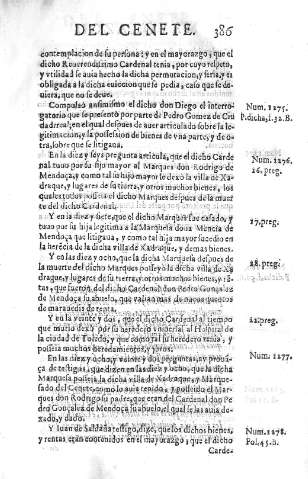 DEL CENETE. 386
contemplacion de su persona: y en el mayorazgo, que el
dicho Reuerendissimo Cardenal tenia, por cuyo respeto,
y vtilidad se auia hecho la dicha permutacion, y seria, y es
obligada a la dicha euiccion que se pedia, caso que se de-
uiera, que no se deue.
Compulsò ansimismo el dicho don Diego el interro-
gatorio que se presentò por parte de Pedro Gomez de Ciu
dad real; en el qual despues de auer articulado sobre la le-
gitimacion, y la possession de bienes de vna parte, y de o-
tra, sobre que se litigaua.
Num. 1275.
P. dicha, l. 32. B.
En la diez y seys pregunta articula, que el dicho Carde
nal tuuo por su hijo mayor al Marques don Rodrigo de
Mendoça, y como tal su hijo mayor le dexò la villa de Xa-
draque, y lugares de su tierra, y otros muchos bienes, los
quales todos posseia el dicho Marques despues de la muer
te del dicho Cardenal.
Num. 1276.
16. preg.
Y en la diez y siete, que el dicho Marques fue casado, y
tuuo por su hija legitima a la Marquesa doña Mencia de
Mendoça que litigaua, y como tal hija mayor sucedio en
la herẽcia de la dicha villa de Xadraque, y demas bienes.
17. preg.
Y en las diez y ocho, que la dicha Marquesa despues de
la muerte del dicho Marques posseyò la dicha villa de Xa
draque, y lugares de su tierra, y otros muchos bienes, y
tas, que fueron del dicho Cardenal don Pedro Gonçales
de Mendoça su abuelo, que valian mas de quentos
de marauedis de renta.
18. preg.
Y en la veinte y dos, que el dicho Cardenal al tiempo
que murio dexò por su heredero vniuersal al Hospital de
la ciudad de Toledo, y que como tal su heredero tenia, y
posseia muchos heredamientos, y
22. preg.
En las diez y ocho, y veinte y dos preguntas, ay prouã-
ça de testigos, que dizen en las diez y ocho, que la dicha
Marquesa posseia la dicha villa de Xadraque, y Marque-
sado del Cenete, como lo auia tenido, y posseido el Mar-
ques don Rodrigo su padre, que eran del Cardenal don Pe
dro Gonçalez de Mendoça su abuelo, el qual se las auia de-
xado, y dado.
Num. 1277.
Y Iuan de Saldaña testigo, dize, que los dichos bienes,
y rentas eran contenidos en el mayorazgo, que el dicho
Num. 1278.
Fol. 45. B.
Carde-